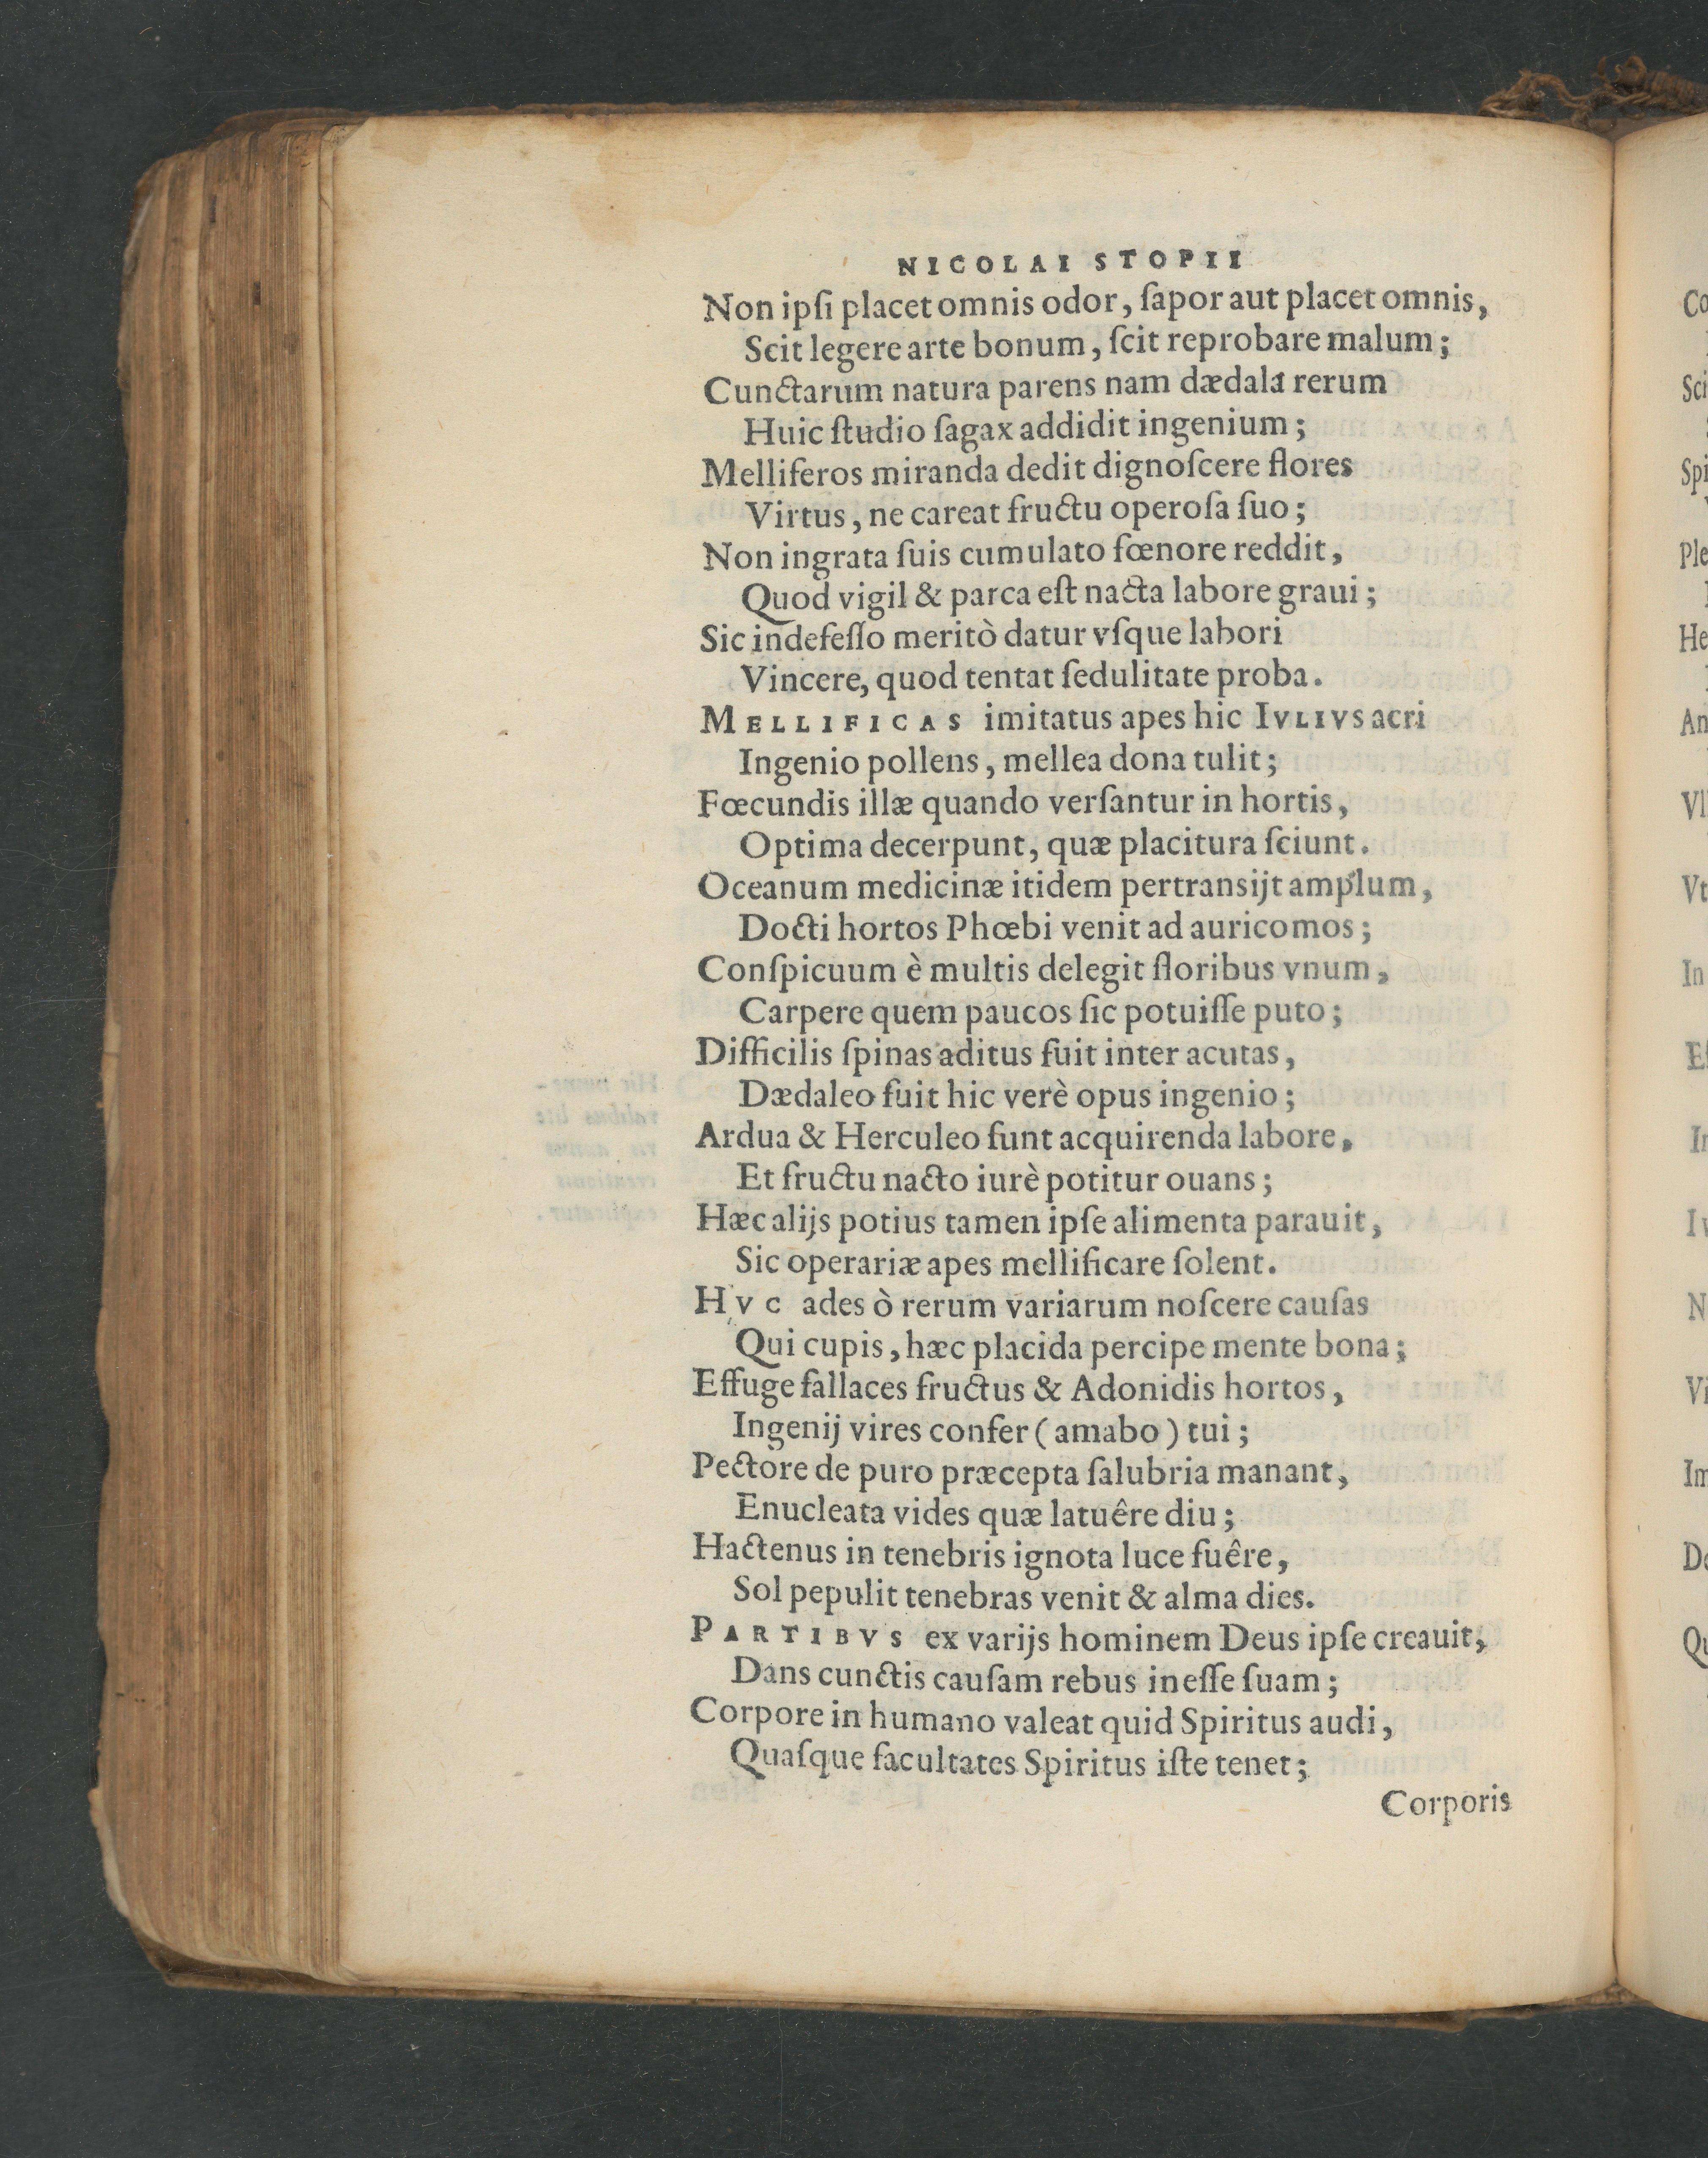 NICOLAI STOPII
Non ipſi placet omnis odor, ſapor aut placet omnis,
Scit legere arte bonum, ſcit reprobare malum;
Cunctarum natura parens nam dædala rerum
Huic ſtudio ſagax addidit ingenium;
Melliferos miranda dedit dignoſcere flores
Virtus, ne careat fructu operoſa ſuo;
Non ingrata ſuis cumulato fœnore reddit,
Quod vigil & parca eſt nacta labore graui;
Sic indefeſſo meritò datur vſque labori
Vincere, quod tentat ſedulitate proba.
MELLIFICAS imitatus apes hic IVLIVS acri
Ingenio pollens, mellea dona tulit;
Fœcundis illæ quando verſantur in hortis,
Optima decerpunt, quæ placitura ſciunt.
Oceanum medicinæ itidem pertransijt amplum,
Docti hortos Phœbi venit ad auricomos;
Conſpicuum è multis delegit floribus vnum,
Carpere quem paucos ſic potuiſſe puto;
Difficilis ſpinas aditus fuit inter acutas,
Dædaleo fuit hic verè opus ingenio;
Ardua & Herculeo ſunt acquirenda labore,
Et fructu nacto iurè potitur ouans;
Hæc alijs potius tamen ipſe alimenta parauit,
Sic operariæ apes mellificare ſolent.
HVC ades ò rerum variarum noſcere cauſas
Qui cupis, hæc placida percipe mente bona;
Effuge fallaces fructus & Adonidis hortos,
Ingenij vires confer (amabo) tui;
Pectore de puro præcepta ſalubria manant,
Enucleata vides quæ latuêre diu;
Hactenus in tenebris ignota luce fuêre,
Sol pepulit tenebras venit & alma dies.
PARTIBVS ex varijs hominem Deus ipſe creauit,
Dans cunctis cauſam rebus ineſſe ſuam;
Corpore in humano valeat quid Spiritus audi,
Quaſque facultates Spiritus iſte tenet;
Corporis